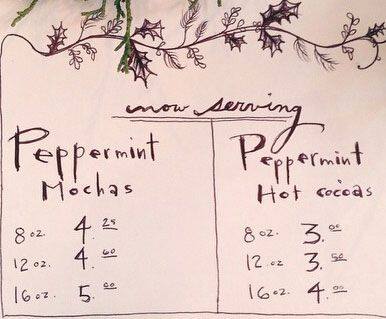 now serving
Peppermint
Mochas
8 oz. 4.25
12 oz. 4.60
16 oz. 5.00
Peppermint
Hot cocoas
8 oz. 3.00
12 oz. 3.50
16 oz. 4.00